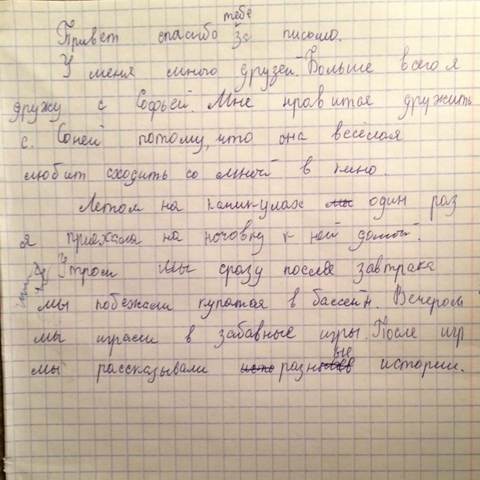 Привет спасибо тебе за письмо.
У меня много друзей. Больше всего я
дружу с Софьей. Мне нравится дружить
с Соней потому, что она весёлая
любит сходить со мной в кино.
Летом на каникулах мы один раз
я приехала на ночовку к ней домой.
Утром мы сразу после завтрака
мы побежали купатся в бассейн. Вечером
мы играли в забавные игры. После игр
мы рассказывали разные истории.